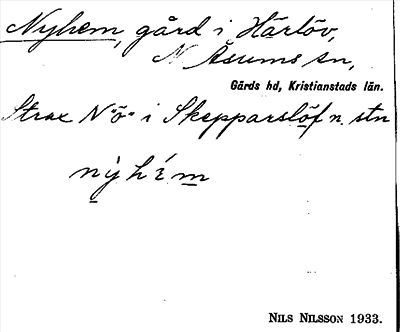 Nyhem, gård i Härlöv,
N Åsums sn,
Gärds hd, Kristianstads län.
Strax N "ö" i Skepparslöf n. stn
nỳhém
NILS NILSSON 1933.